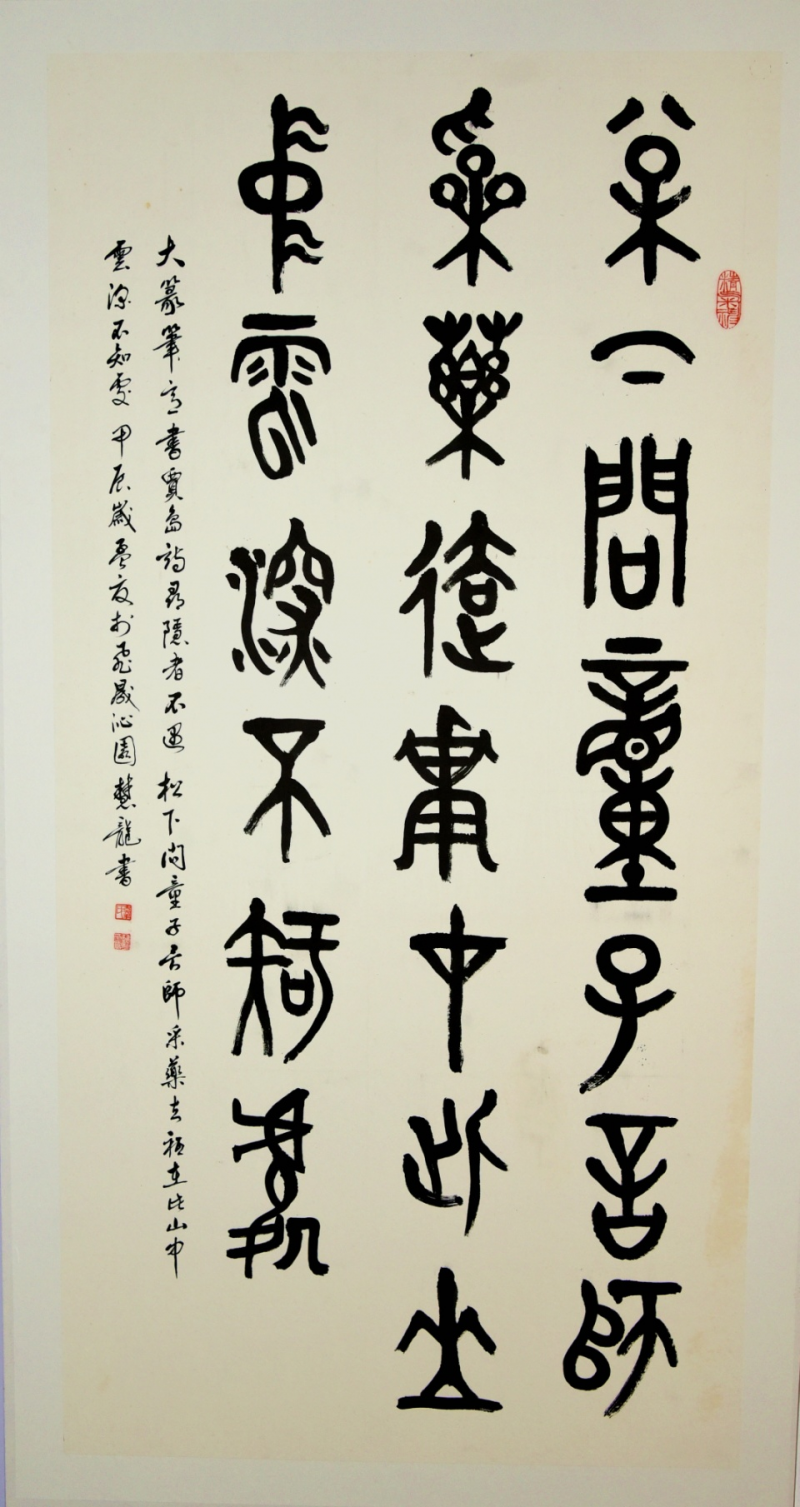 松下問童子言師
采藥去祇在此山
中雲深不知處
大篆筆意書賈島詩尋隱者不遇 松下问童子言師采藥去祇在此山中
雲深不知處 甲辰歲孟夏於飛晟沁園慧龍書